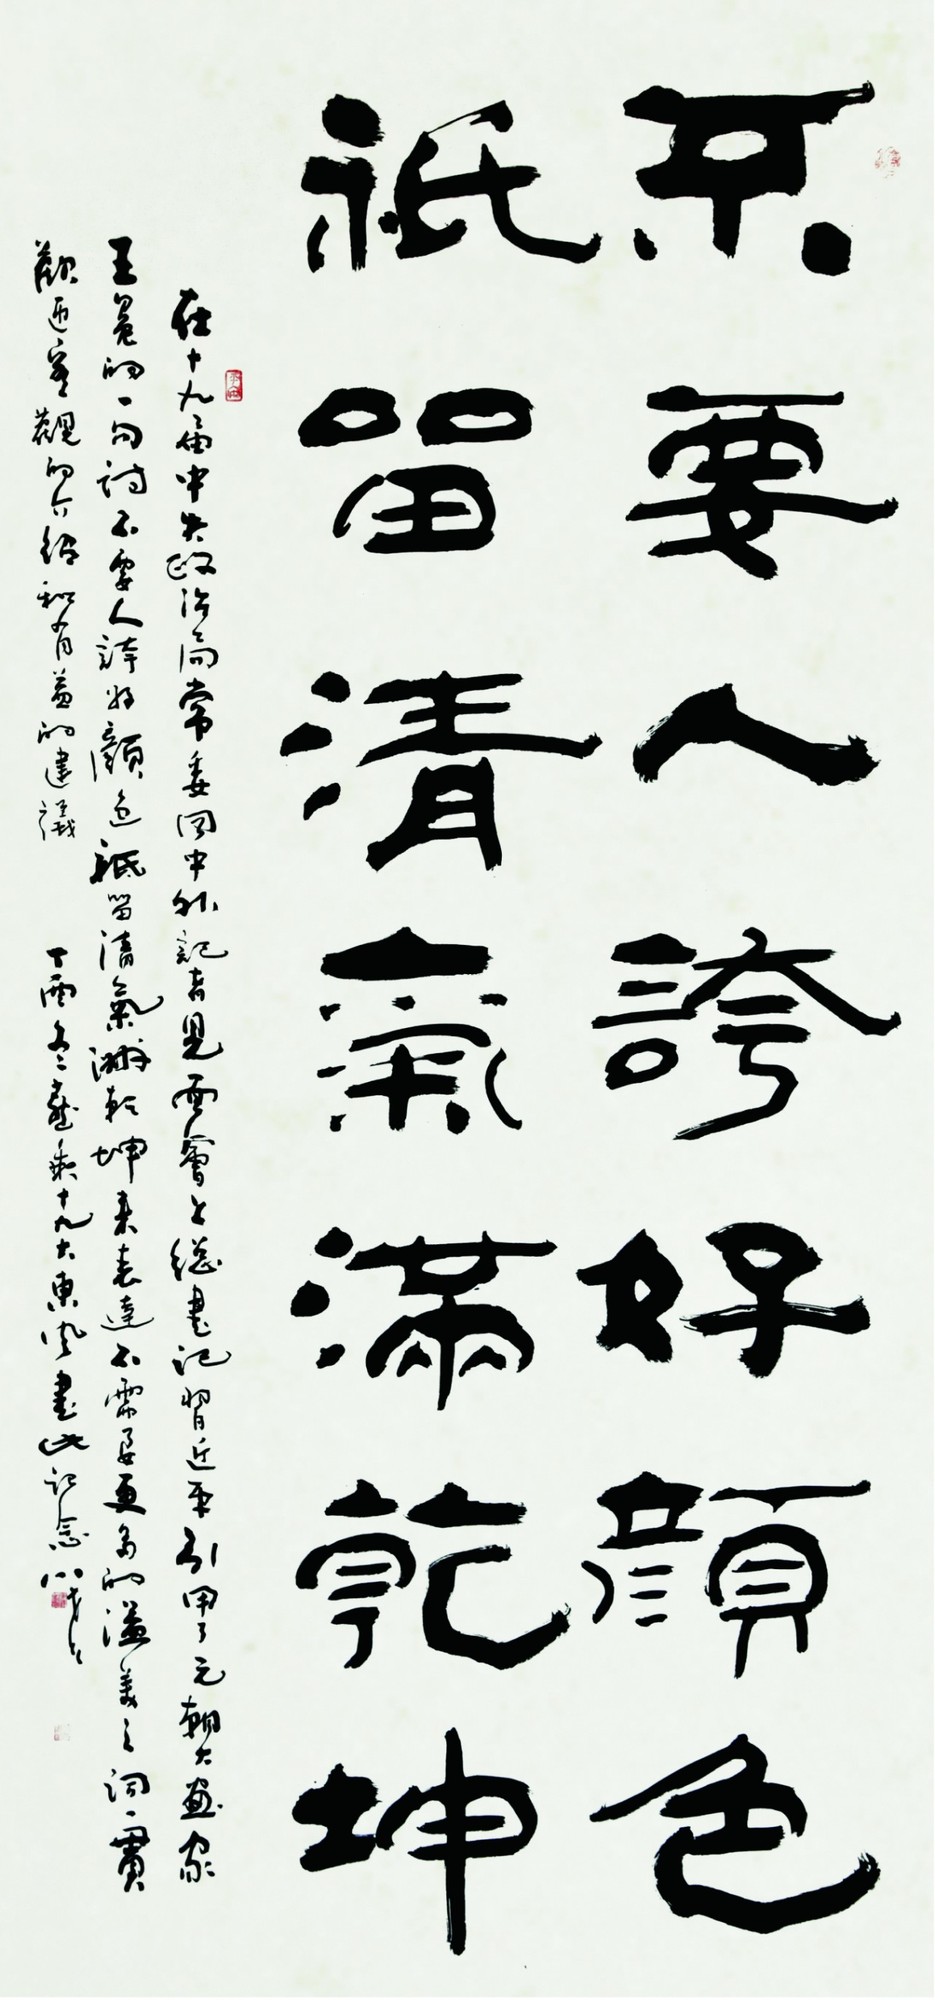 不要人誇好顏色
祇留清氣滿乾坤
在十九屆中央政治局常委同中外記者見面會上總書記習近平引用了元朝大畫家
王冕的一句詩不要人誇好顏色祇留清氣滿乾坤来表達不需要更多的溢美之詞一貫
歡迎客觀的介紹和有益的建議
丁酉冬 十九大東風書此記念